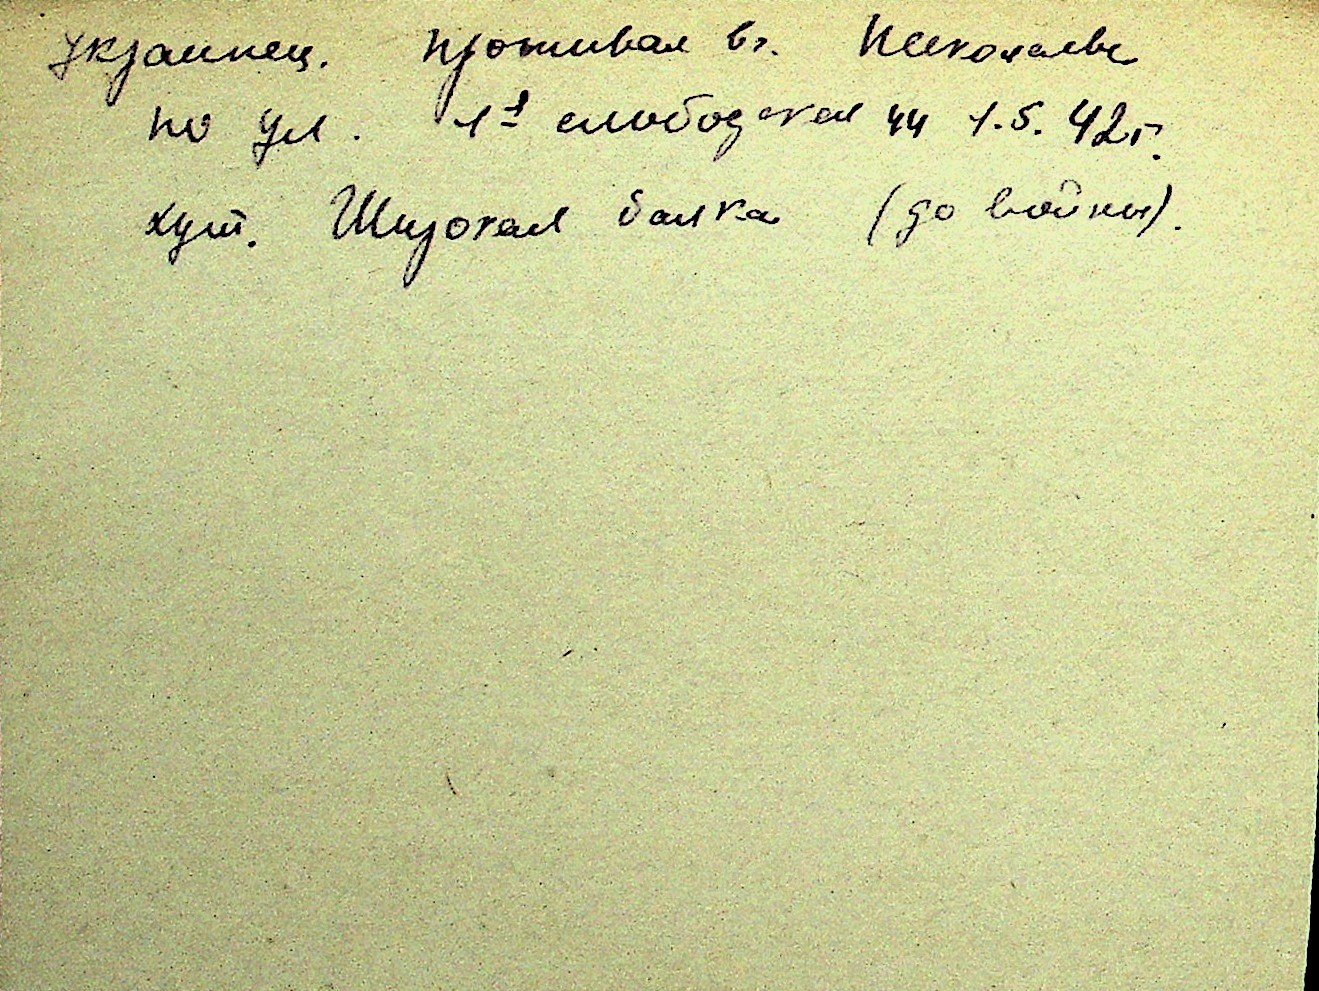 украинец. проживал в г. Николаеве
по ул. 1я слободская 44 1.5.42г.
хут. Широкая балка (до войны).